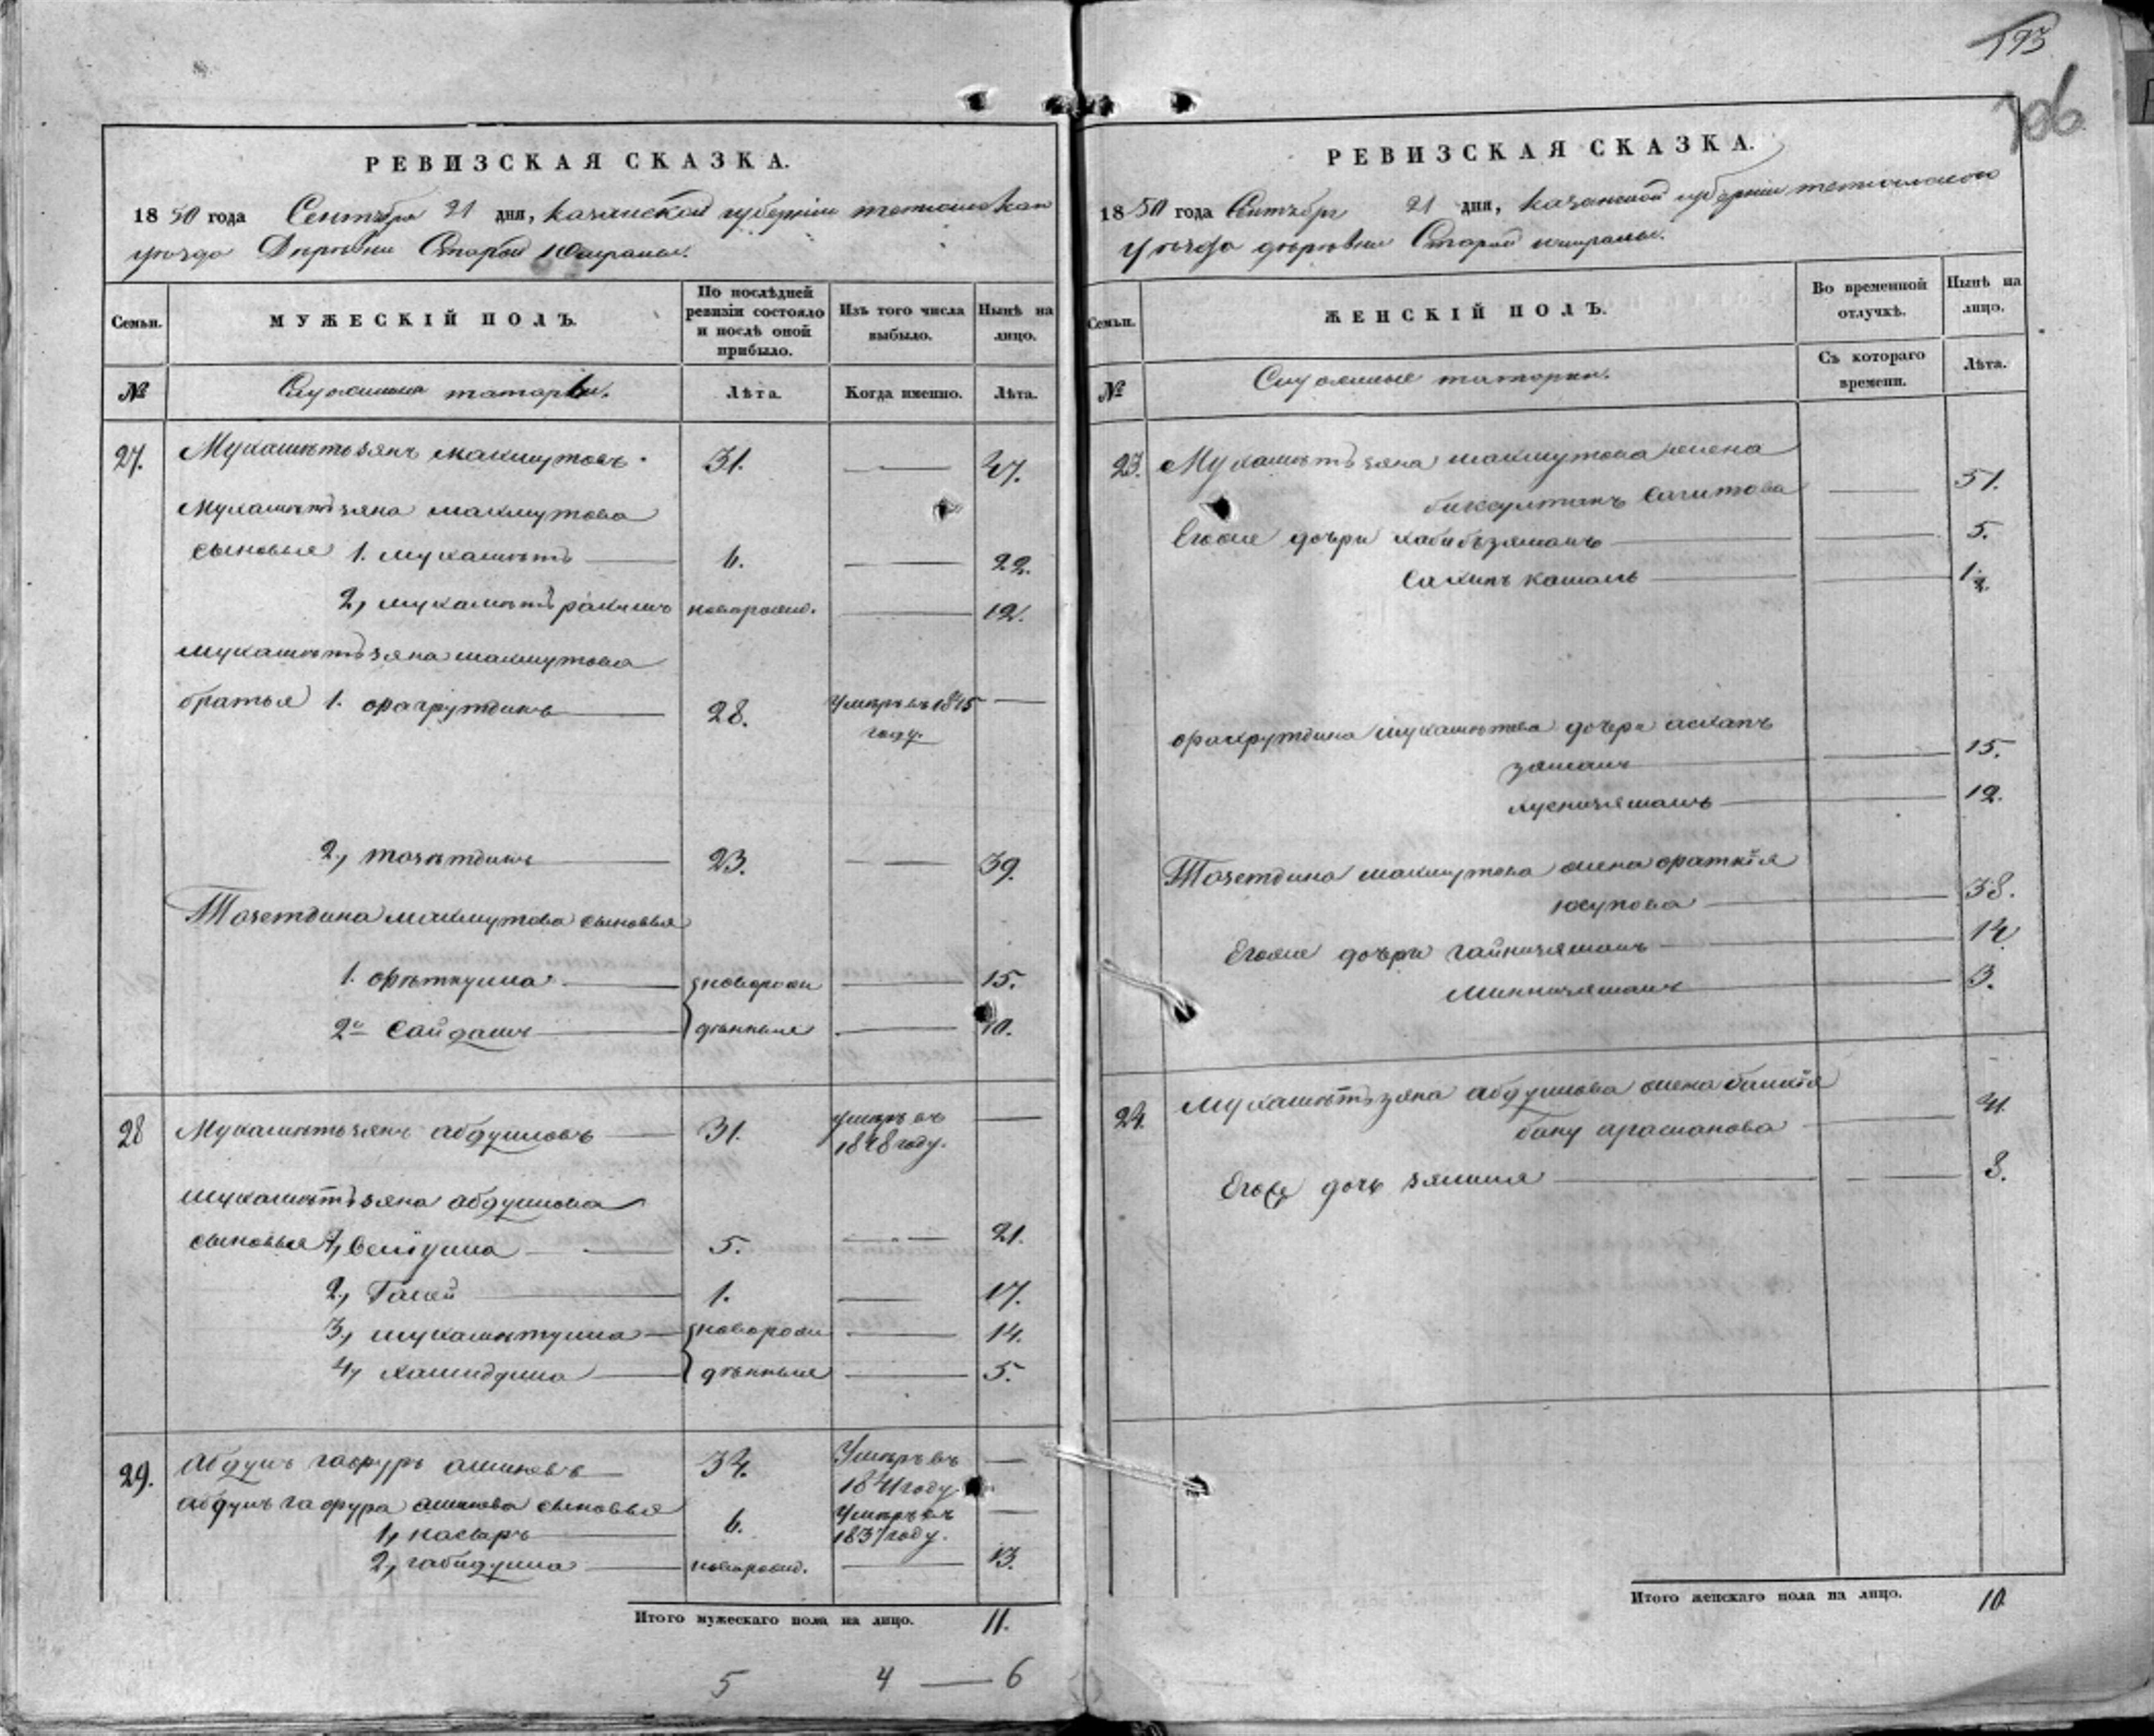 193
706
РЕВИЗСКАЯ СКАЗКА.
1850 года Сентября 21 дня, казанской губернии тетюшскаго
уѣзда Деревни Старой
Семьи.
МУЖЕСКІЙ ПОЛЪ.
По послѣдней ревизіи состояло и послѣ оной прибыло.
Изъ того числа выбыло.
Нынѣ на лицо.
№
Служилыя татары.
Лѣта.
Когда именно.
Лѣта.
27. Мухаметьзянъ Макмутовъ 31. — 47.
Мухаметьзяна макмутова
сыновья 1. мухаметь 6. — 22.
2, мухаметь новорожд. — 12.
мухаметьзяна макмутова
братья 1. фахрутдинъ 28. Умеръ въ 1845 году. —
2, тазетдинъ 23. — 39.
Тазетдина макмутова сыновья
1. феткулла новорож — 15.
2й Сайдашъ денные — 10.
28 Мухаметьзянъ абдуловъ 31. умеръ въ 1848 году. —
мухаметьзяна абдулова
сыновья 1, 5. — 21.
2, Галей 1. — 17.
3, мухаметулла новорож — 14.
4, денные — 5.
29. абдулъ гафуръ 34. Умеръ въ 1841 году. —
абдулъ гафура сыновья
1, насыръ 6. Умеръ въ 1837 году. —
2, габидулла новорожд. — 13.
Итого мужескаго пола на лицо. 11.
5 4 — 6
РЕВИЗСКАЯ СКАЗКА.
1850 года Сентября 21 дня, казанской губерніи тетюшскаго
уѣзда деревни Старой
Семьи.
ЖЕНСКІЙ ПОЛЪ.
Во временной отлучкѣ.
Нынѣ на лицо.
№
Служилые татарки.
Съ котораго времени.
Лѣта.
23. Мухаметьзяна макмутова жена
Сагитова — 51.
Егоже дочери хабибзямалъ — 5.
камалъ — 1/2.
фахрутдина мухаметева дочери
зямалъ — 15.
хуснизямалъ — 12.
Тазетдина макмутова жена
юсупова — 38.
Егоже дочери гайнизямалъ 14.
Миннизямалъ 3.
24. Мухаметьзяна абдулова жена
бану — 41.
Егоже дочь — 8.
Итого женскаго пола на лицо. 10.